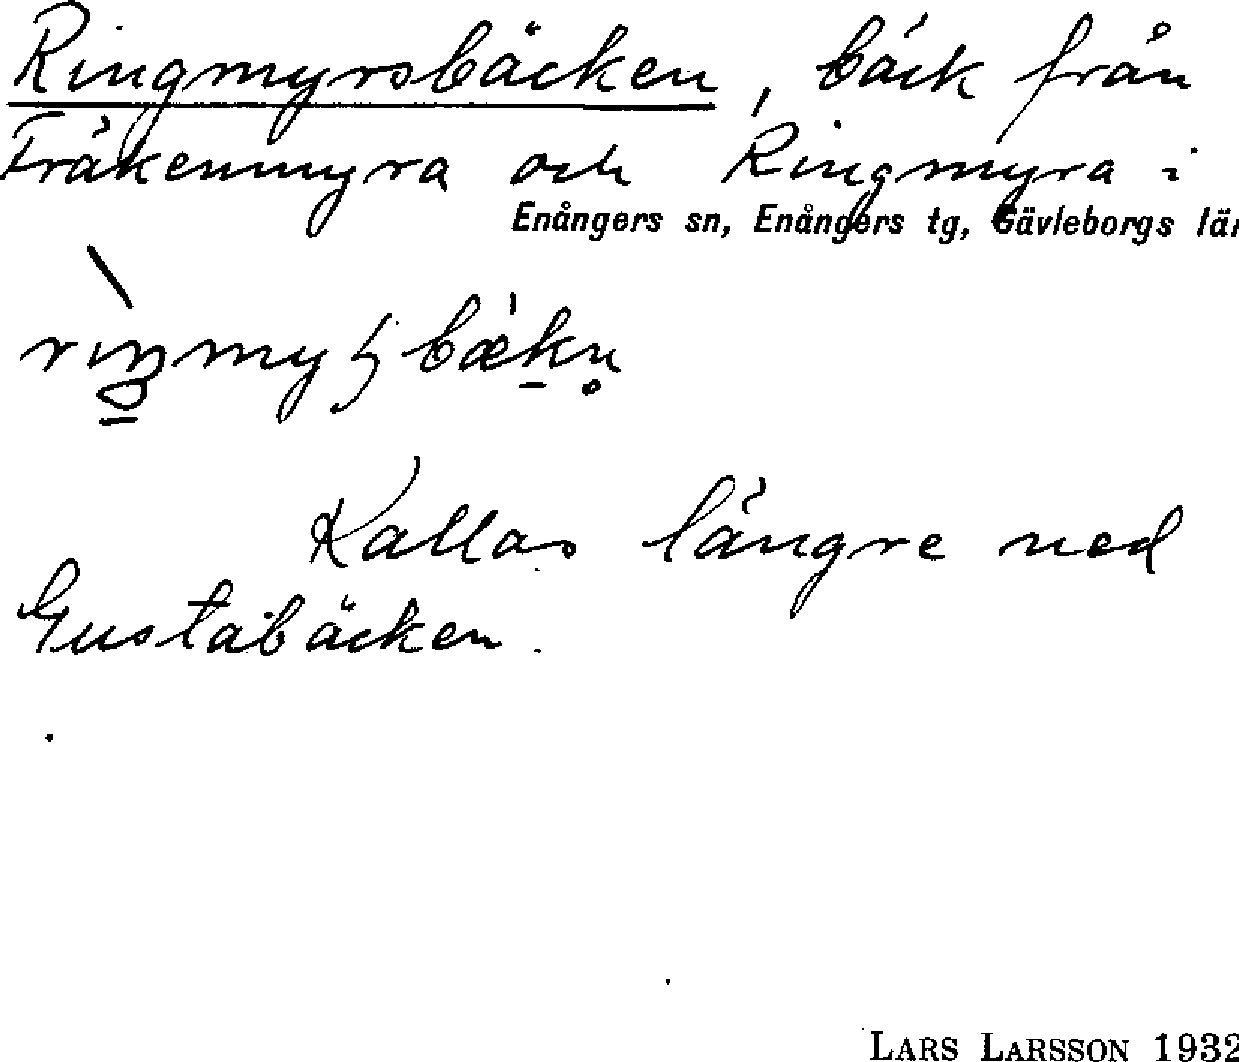 Ringmyrsbäcken, bäck från
Fräkenmyra och Ringmyra i
Enångers sn, Enångers tg, Gävleborgs län
Kallas längre ned
Gustabäcken.
LARS LARSSON 1932